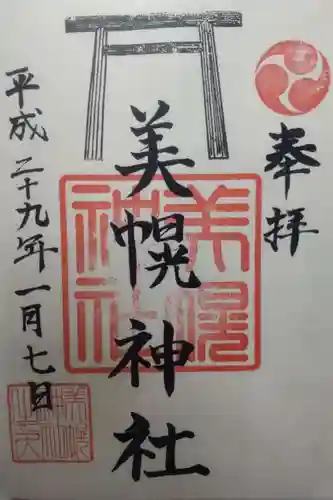 奉拝
美幌神社
平成二十九年一月七日
美幌神社